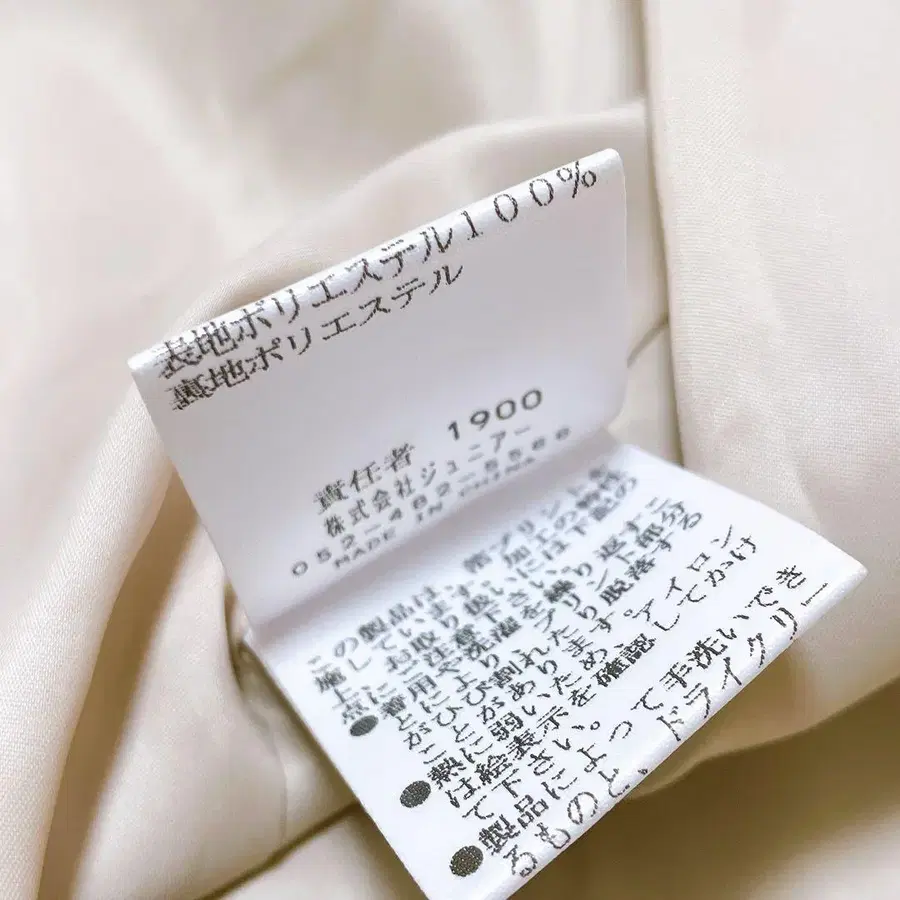 表地ポリエステル100%
裏地ポリエステル
責任者 1900
株式会社ジュニアー
052-482-5566
MADE IN CHINA
この製品は、箔プリントを
施しています。加工の物性
上、お取り扱いには下記の
点にご注意下さい。
●着用や洗濯を繰り返すこ
とにより、プリント部分
がひび割れたり脱落する
ことがあります。
●熱に弱いため、アイロン
は絵表示を確認してかけ
て下さい。
●製品によって手洗いでき
るものと、ドライクリー